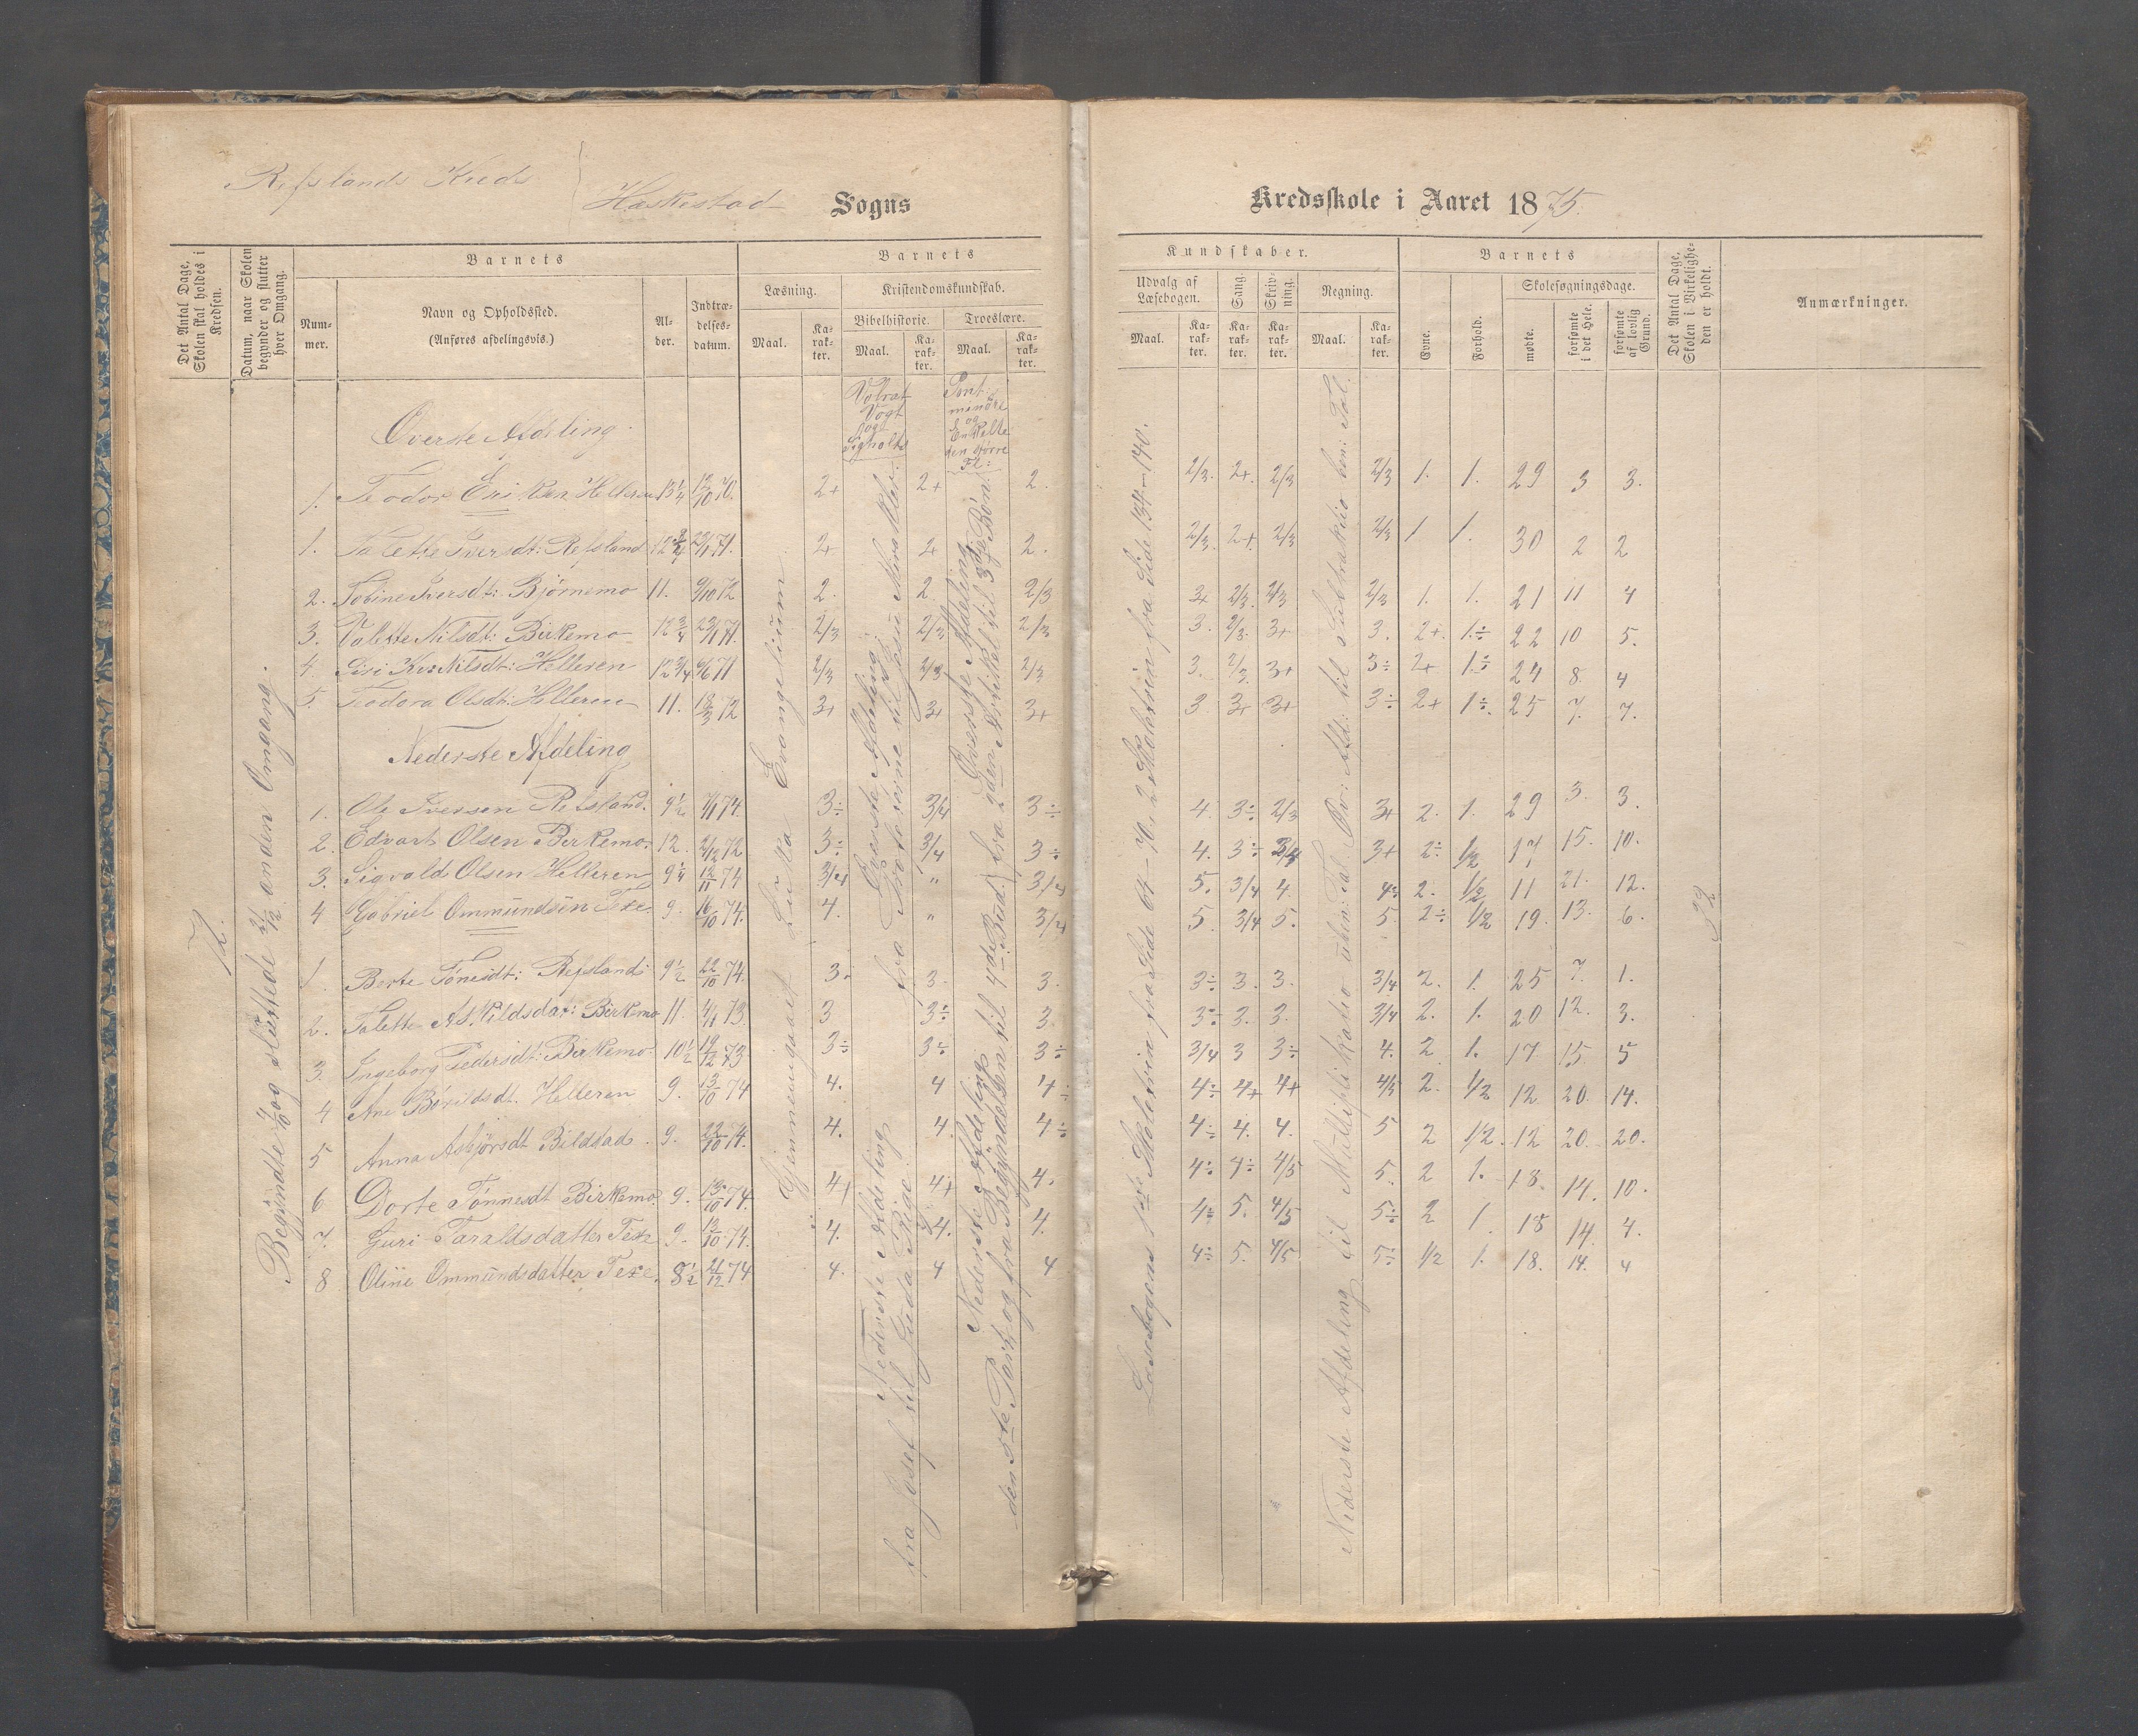 Refslands Kreds
Heskestad Sogns
Kredsskole i Aaret 1875.
Det Antal Dage, Skolen skal holdes i Kredsen.
Datum, naar Skolen begynder og slutter hver Omgang.
Barnets
Nummer.
Navn og Opholdssted.
(Anføres afdelingsvis.)
Alder.
Indtrædelsesdatum.
Barnets
Læsning.
Maal.
Karakter.
Kristendomskundskab.
Bibelhistorie.
Maal.
Karakter.
Troeslære.
Maal.
Karakter.
Kundskaber.
Udvalg af Læsebogen.
Maal.
Karakter.
Sang.
Karakter.
Skrivning.
Karakter.
Regning.
Maal.
Karakter.
Barnets
Evne.
Forhold.
Skolesøgningsdage.
mødte.
forsømte i det Hele.
forsømte af lovlig Grund.
Det Antal Dage, Skolen i Virkeligheden er holdt.
Anmærkninger.
72.
anden Omgang.
Øverste Afdeling.
Vogt
og
Enkelte
den større
1. Teodor Eriksen Helleren 13 1/4 12/10 70. 2+ 2+ 2. 2/3. 2+. 2/3 2/3 1. 1. 29 3 3.
1. Talette Iversdt: Refsland 12 3/4 23/1 71. 2+ 2+ 2. 2/3. 2+. 2/3 2/3 1 1. 30 2 2
2. Tobine Iversdt: Bjørnemo 11. 9/10 72 2. 2. 2/3 3+ 2/3. 2/3 2/3 1. 1. 21 11 4
3. Valette Nilsdt: Birkemo 12 3/4 23/1 71. 2/3 2/3 2/3 3. 2/3. 3+ 3. 2+. 1÷ 22 10 5.
4. Nilsdt: Helleren 12 3/4 71 2/3 2/3 2/3 3. 2/3. 3+ 3÷ 2+ 1÷ 24 8. 4
5. Teodora Olsdt: Helleren 11. 13/3 72 3+ 3+ 3+ 3 3+ 3+ 3÷ 2+ 1÷. 25 7. 7.
Nederste Afdeling
1. Ole Iversen Refsland. 9 1/2 74. 3÷ 3/4 3÷ 4. 3÷ 2/3 3+ 2. 1. 29 3. 3.
2. Edvart Olsen Birkemo. 12. 2/12 72 3÷ 3/4 3÷ 4. 3÷ 3+ 2÷ 1/2 17 15. 10.
3. Sigvald Olsen Helleren 9 1/4 12/11 74 3/4 " 3/4 5. 3/4 4. 2. 1/2 11 21. 12.
4 Gabriel Ommundsen Texe. 9. 16/10 74. 4. " 3/4 5. 3/4 5. 5. 2÷ 1/2 19. 13. 6.
1. Berte Tønesdt: Refsland 9 1/2 22/10 74. 3. 3. 3. 3÷ 3. 3. 3/4 2. 1. 25 7. 1.
2. Talette Askildsdat: Birkemo 11. 4/11 73. 3 3÷ 3. 3÷ 3. 3. 3/4 2. 1. 20 12. 3.
3. Ingeborg Pedersdt: Birkemo. 10 1/2 19/12 73 3÷ 3÷ 3÷ 3/4 3 3÷ 4. 2. 1. 17 15. 5
4 Ane Helleren 9. 13/10 74 4. 4 4÷ 4÷ 4+ 4+ 4/5 2. 1/2 12 20. 14.
5 Anna Bilstad. 9. 22/10 74. 4. 4. 4÷ 4÷ 4. 4. 5 2 1/2. 12 20. 20.
6 Dorte Tønnesdt Birkemo. 9. 13/10 74. 4+ 4+ 4. 4÷ 4÷ 4/5 5. 2 1. 18. 14. 10.
7. Guri Taraldsdatter Texe 9. 13/10 74. 4. 4. 4. 4÷ 5. 4/5 5÷ 2 1. 18 14. 4.
8 Oline Ommundsdatter Texe. 8 1/2 21/12 74 4. 4 4 4÷ 5. 4/5 5÷ 1/2 1. 18. 14. 4
Gjennemgaaet Lukas Evangelium
Øverste Afdeling
Nederste Afdeling
fra Josef til Juda Rige.
Øverste Afdeling
fra 2den Artikel til 3die Bøn.
Nederste Afdeling
den 5te Part og fra Begyndelsen til 4de Bud.
Nederste Afdeling til Multiplikatio
32